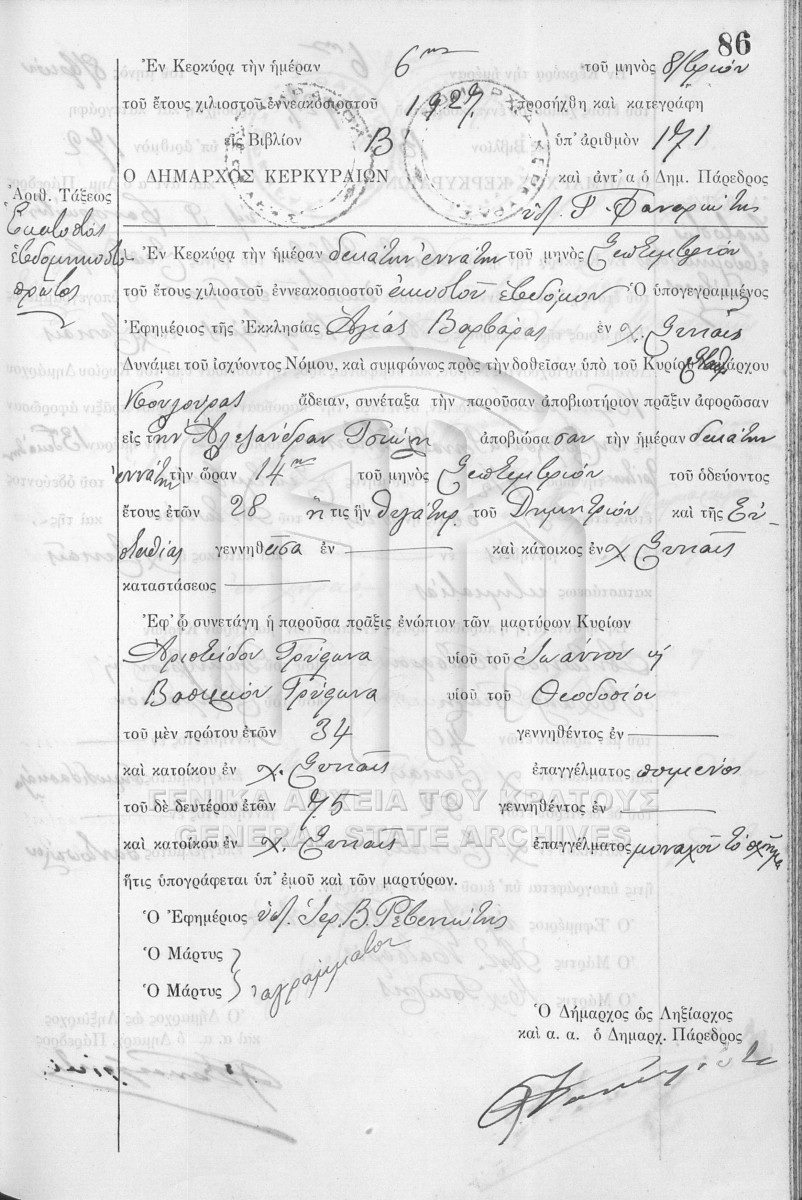 86
Ἐν Κερκύρᾳ τὴν ἡμέραν 6ην τοῦ μηνὸς 8/βρίου
τοῦ ἔτους χιλιοστοῦ ἐννεακοσιοστοῦ 1927 προσήχθη καὶ κατεγράφη
εἰς Βιβλίον Β ὑπ' ἀριθμὸν 171
Ο ΔΗΜΑΡΧΟΣ ΚΕΡΚΥΡΑΙΩΝ καὶ ἀντ' α ὁ Δημ. Πάρεδρος
Ἀριθ. Τάξεως
Ἑκατοστὸς
ἑβδομηκοστὸς
πρῶτος
Ἐν Κερκύρᾳ τὴν ἡμέραν δεκάτην ἐννάτην τοῦ μηνὸς Σεπτεμβρίου
τοῦ ἔτους χιλιοστοῦ ἐννεακοσιοστοῦ εἰκοστοῦ ἑβδόμου Ὁ ὑπογεγραμμένος
Ἐφημέριος τῆς Ἐκκλησίας Ἁγίας Βαρβάρας ἐν χ.
Δυνάμει τοῦ ἰσχύοντος Νόμου, καὶ συμφώνως πρὸς τὴν δοθεῖσαν ὑπὸ τοῦ Κυρίου
ἄδειαν, συνέταξα τὴν παροῦσαν ἀποβιωτήριον πρᾶξιν ἀφορῶσαν
εἰς τὴν Ἀλεξάνδραν ἀποβιώσασαν τὴν ἡμέραν δεκάτην
ἐννάτην τὴν ὥραν 14ην τοῦ μηνὸς Σεπτεμβρίου τοῦ ὁδεύοντος
ἔτους ἐτῶν 28 ἥτις ἦν θυγάτηρ τοῦ Δημητρίου καὶ τῆς Εὐ-
σταθίας γεννηθεῖσα ἐν καὶ κάτοικος ἐν χ
καταστάσεως
Ἐφ' ᾧ συνετάγη ἡ παροῦσα πρᾶξις ἐνώπιον τῶν μαρτύρων Κυρίων
Ἀριστείδου Τρύφωνα υἱοῦ τοῦ Ἰωάννου
Βασιλείου Τρύφωνα υἱοῦ τοῦ Θεοδοσίου
τοῦ μὲν πρώτου ἐτῶν 34 γεννηθέντος ἐν
καὶ κατοίκου ἐν χ. ἐπαγγέλματος ποιμένος
τοῦ δὲ δευτέρου ἐτῶν 75 γεννηθέντος ἐν
καὶ κατοίκου ἐν χ. ἐπαγγέλματος
ἥτις ὑπογράφεται ὑπ' ἐμοῦ καὶ τῶν μαρτύρων.
Ὁ Ἐφημέριος
Ὁ Μάρτυς
Ὁ Μάρτυς ἀγράμματοι
Ὁ Δήμαρχος ὡς Ληξίαρχος
καὶ α. α. ὁ Δημαρχ. Πάρεδρος
ΓΕΝΙΚΑ ΑΡΧΕΙΑ ΤΟΥ ΚΡΑΤΟΥΣ
GENERAL STATE ARCHIVES